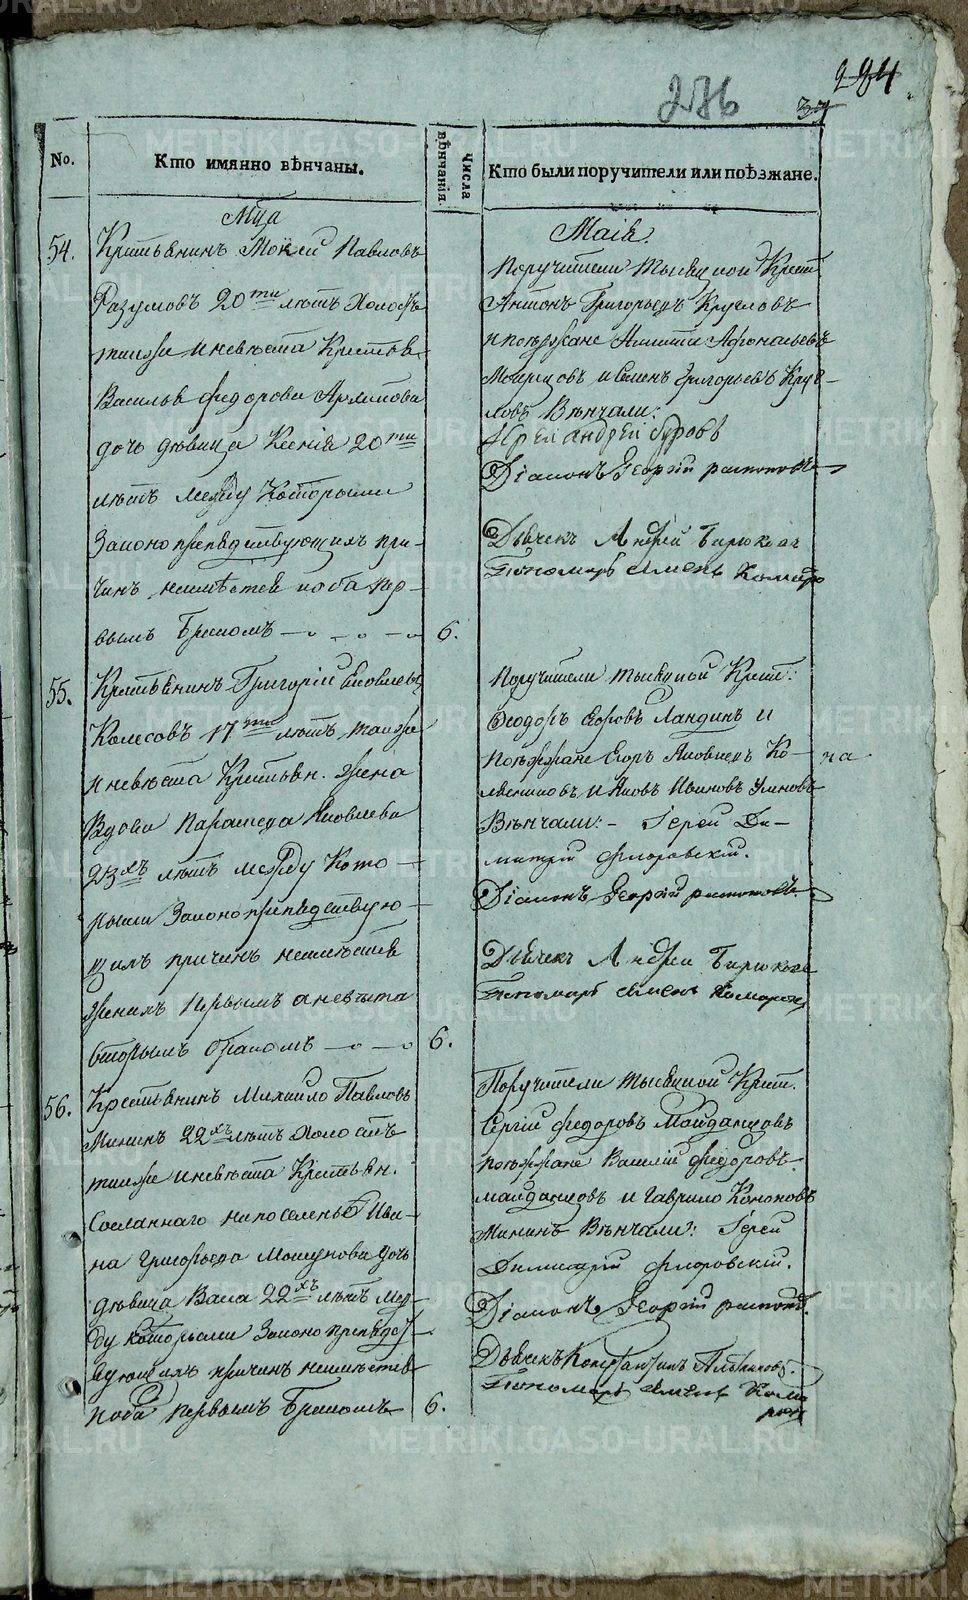 294
276
37
No.
Кто имянно вѣнчаны.
Числа вѣнчанія.
Кто были поручители или поѣзжане.
Мца
Маія.
54. Крестьянинъ Мокей Павловъ
Разумовъ 20ти лѣтъ холостъ
также и невѣста Крестья
Василья Федорова
дочь дѣвица Ксенія 20ти
лѣтъ между которыми
законопрепядствующихъ при-
чинъ неимѣется и оба пер-
вымъ бракомъ 6.
Поручители тысяцкой Крест.
Антонъ Григорьевъ Кругловъ
и поѣзжане Афонасьевъ
и Семенъ Григорьевъ Круг-
ловъ Вѣнчали:
Іерей Андрей Суровъ
Діаконъ Георгій
Дьячекъ Андрей Бирюков
Пономарь Семенъ Комаро
55. Крестьянинъ Григорій Яковлевъ
Колесовъ 17ти лѣтъ также
и невѣста Крестьян. жена
вдова Параскева Яковлева
23хъ лѣтъ между кото-
рыми законопрепядствую-
щихъ причинъ неимѣется
женихъ первымъ а невѣста
вторымъ бракомъ 6.
Поручители тысяцкой Крест:
Феодоръ Егоровъ Ландинъ и
поѣзжане Егоръ Яковлевъ Ко-
и Яковъ Ивановъ
Вѣнчали:- Іерей Ди-
митрій Флоровскій.
Діаконъ Георгій
Дьячекъ Андрей Бирюковъ
Пономарь Семенъ Комаров
56. Крестьянинъ Михайло Павловъ
Мининъ 22хъ лѣтъ холостъ
также и невѣста Крестьян.
сосланнаго на поселенье Ива-
на Григорьева дочь
дѣвица Васа 22хъ лѣтъ меж-
ду которыми законопрепядст-
вующихъ причинъ неимѣется
и оба первымъ бракомъ 6.
Поручители тысяцкой Крест.
Сергій Федоровъ Майданцовъ
поѣзжане Василій Федоровъ
Майданцовъ и Гаврило Кононовъ
Мининъ Вѣнчали: Іерей
Димитрій Флоровскій.
Діаконъ Георгій
Дьячекъ Константинъ
Пономарь Семенъ Кома
ров
METRIKI.GASO-URAL.RU